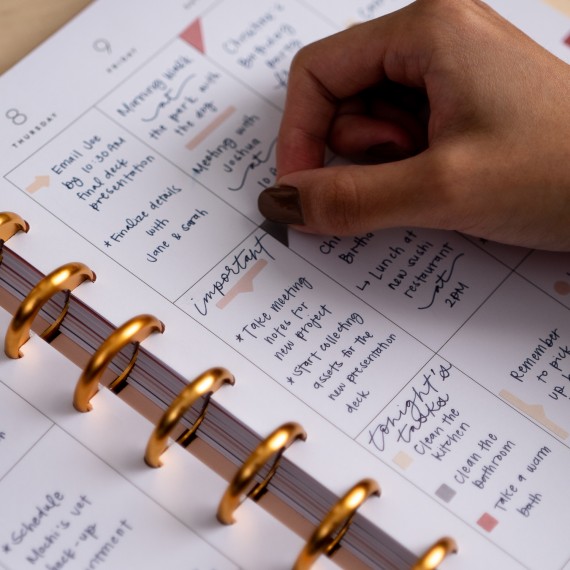 8
THURSDAY
Email Joe
by 10:30AM
final deck
presentation
*Finalize details
with
Jane & sarah
important
* Take meeting
notes for
new project
* Start collecting
assets for the
new presentation
deck
tonight's
tasks
Clean the
kitchen
Clean the
bathroom
Take a warm
bath
9
FRIDAY
Morning walk
at
the park with
the dog
Meeting with
Joshua
at
↳ Lunch at
new sushi
restaurant
at
2PM
Remember
to pick
up
Christina's
Birthday
Party
*Schedule
vet